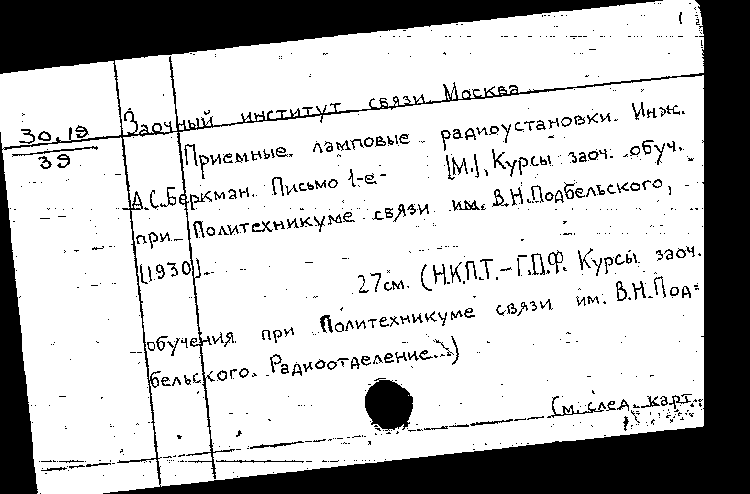 1
Заочный институт связи. Москва
30.19
39
Приемные ламповые радиоустановки. Инж.
А.С.Беркман. Письмо 1-е- [М.], Курсы заоч. обуч.
при Политехникуме связи им. В.Н.Подбельского,
[1930].
27см. (Н.К.П.Т.-Г.П.Ф. Курсы заоч.
обучения при Политехникуме связи им. В.Н.Под=
бельского. Радиоотделение...)
См. след. карт.